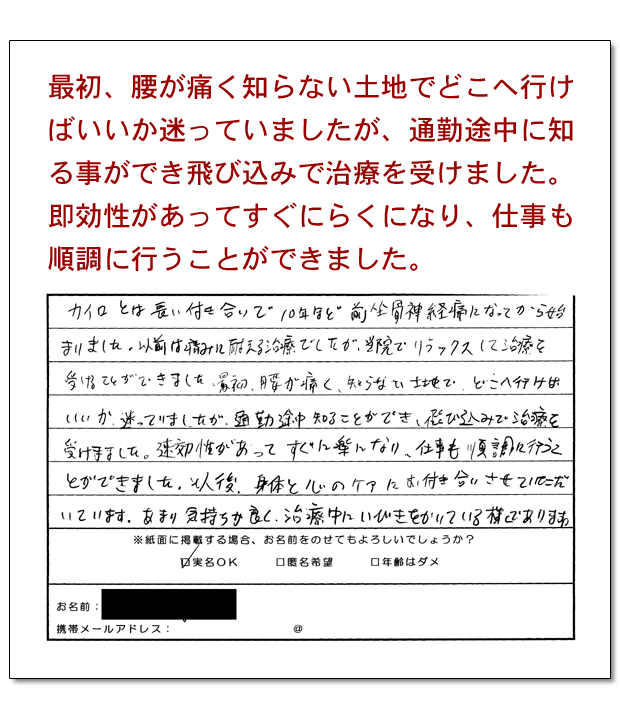 最初、腰が痛く知らない土地でどこへ行け
ばいいか迷っていましたが、通勤途中に知
る事ができ飛び込みで治療を受けました。
即効性があってすぐにらくになり、仕事も
順調に行うことができました。
カイロとは長い付き合いで10年ほど前坐骨神経痛になってから始
まりました。以前は痛みに耐える治療でしたが、当院でリラックスして治療を
受けることができました。最初、腰が痛く、知らない土地で、どこへ行けば
いいか、迷っていましたが、通勤途中知ることができ、飛び込みで治療を
受けました。速効性があってすぐに楽になり、仕事も順調に行うこ
とができました。以後、身体と心のケアにお付き合いさせていただ
いています。あまり気持ちが良く、治療中にいびきをかいている様でありますが
※紙面に掲載する場合、お名前をのせてもよろしいでしょうか？
□実名OK □匿名希望 □年齢はダメ
お名前：
携帯メールアドレス： @